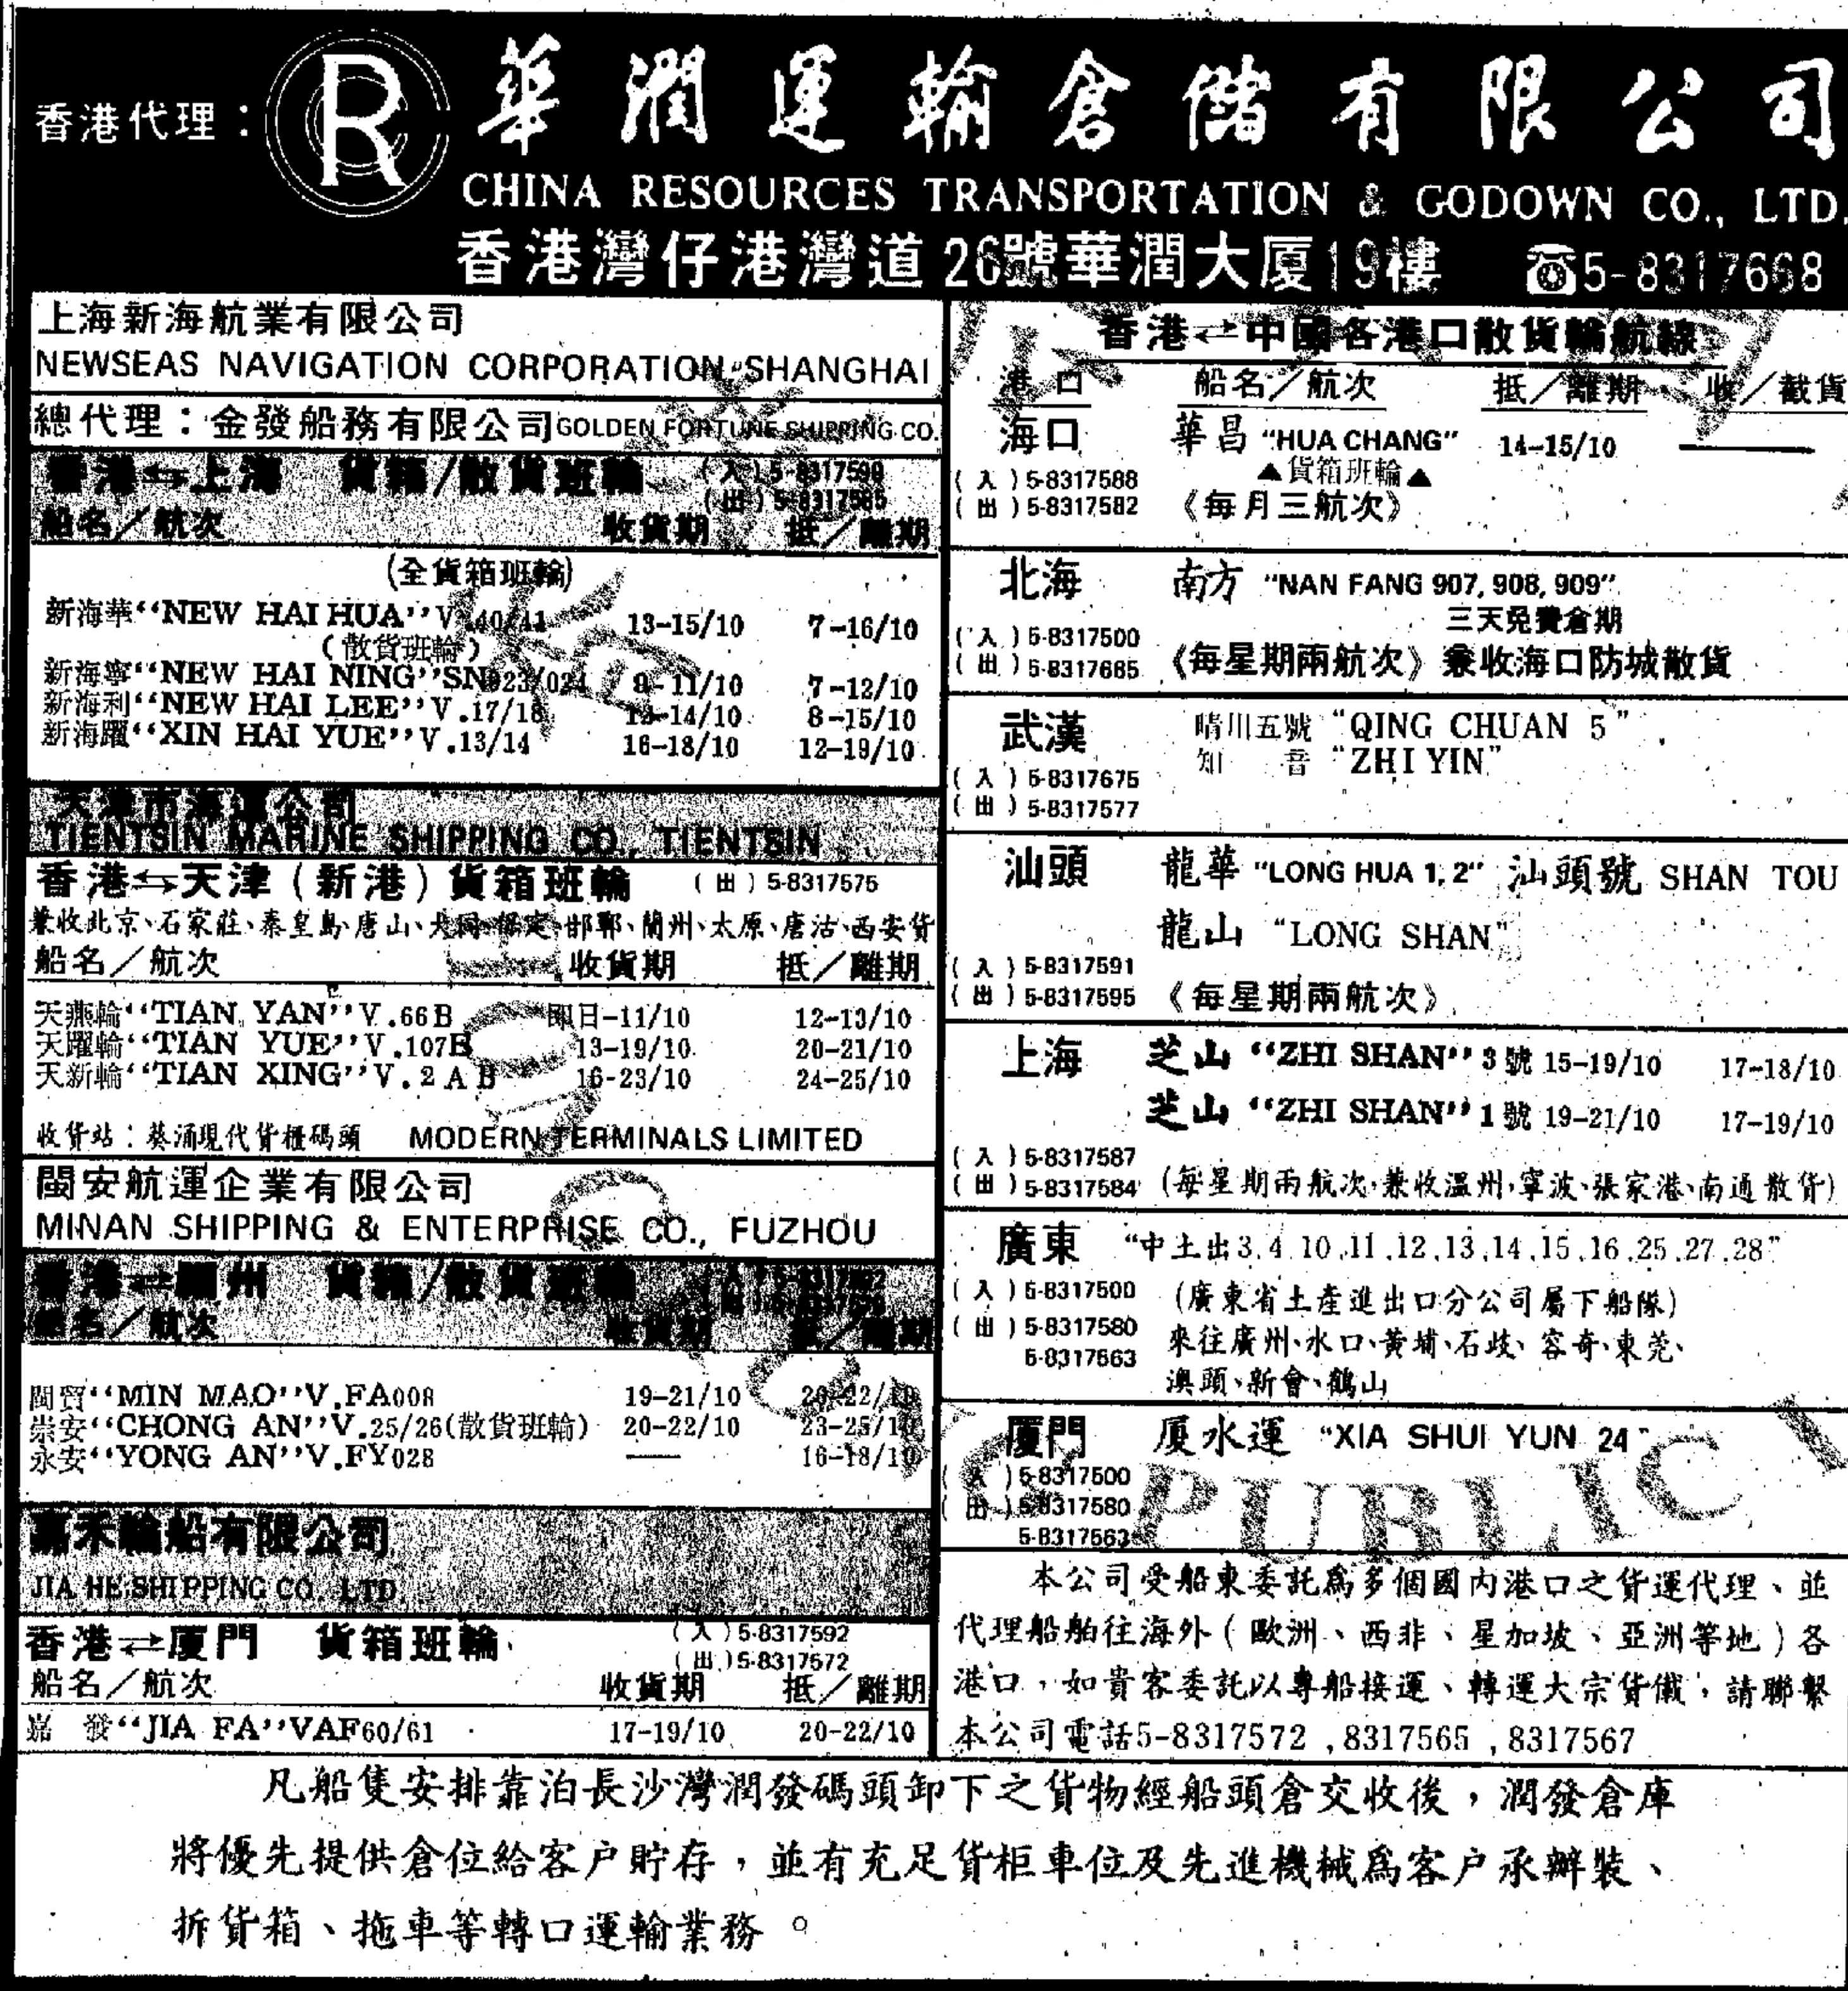 香港代理：
R
華潤運輸倉儲有限公司
CHINA RESOURCES TRANSPORTATION & GODOWN CO., LTD.
香港灣仔港灣道26號華潤大厦19樓 ☎5-8317668
上海新海航業有限公司
NEWSEAS NAVIGATION CORPORATION SHANGHAI
總代理：金發船務有限公司 GOLDEN FORTUNE SHIPPING CO.
香港⇆上海 貨箱/散貨班輪
(入) 5-8317599
(出) 5-8317585
船名／航次 收貨期 抵／離期
(全貨箱班輪)
新海華“NEW HAI HUA” V.40/41 13-15/10 7-16/10
(散貨班輪)
新海寧“NEW HAI NING” SN023/024 8-11/10 7-12/10
新海利“NEW HAI LEE” V.17/18 -14/10 8-15/10
新海躍“XIN HAI YUE” V.13/14 16-18/10 12-19/10
天津市海運公司
TIENTSIN MARINE SHIPPING CO., TIENTSIN
香港⇆天津（新港）貨箱班輪 (出) 5-8317575
兼收北京、石家莊、秦皇島、唐山、大同、保定、邯鄲、蘭州、太原、唐沽、西安貨
船名／航次 收貨期 抵／離期
天燕輪“TIAN YAN” V.66B 即日-11/10 12-13/10
天躍輪“TIAN YUE” V.107B 13-19/10 20-21/10
天新輪“TIAN XING” V.2 A B 16-23/10 24-25/10
收貨站：葵涌現代貨櫃碼頭 MODERN TERMINALS LIMITED
閩安航運企業有限公司
MINAN SHIPPING & ENTERPRISE CO., FUZHOU
香港⇄福州 貨箱/散貨班輪
船名／航次 收貨期 抵／離期
閩貿“MIN MAO” V.FA008 19-21/10 20-22/10
崇安“CHONG AN” V.25/26(散貨班輪) 20-22/10 23-25/10
永安“YONG AN” V.FY028 —— 16-18/10
嘉禾輪船有限公司
JIA HE SHIPPING CO. LTD.
香港⇄厦門 貨箱班輪
(入) 5-8317592
(出) 5-8317572
船名／航次 收貨期 抵／離期
嘉發“JIA FA” VAF60/61 17-19/10 20-22/10
香港⇄中國各港口散貨輪航線
港口 船名／航次 抵／離期 收／截貨
海口 華昌 “HUA CHANG” 14-15/10 ——
▲貨箱班輪▲
(入) 5-8317588
(出) 5-8317582 《每月三航次》
北海 南方 “NAN FANG 907, 908, 909”
三天免費倉期
(入) 5-8317500
(出) 5-8317685 《每星期兩航次》兼收海口防城散貨
武漢 晴川五號 “QING CHUAN 5”
知音 “ZHI YIN”
(入) 5-8317675
(出) 5-8317577
汕頭 龍華 “LONG HUA 1, 2” 汕頭號 SHAN TOU
龍山 “LONG SHAN”
(入) 5-8317591
(出) 5-8317595 《每星期兩航次》
上海 芝山 “ZHI SHAN” 3號 15-19/10 17-18/10
芝山 “ZHI SHAN” 1號 19-21/10 17-19/10
(入) 5-8317587
(出) 5-8317584 (每星期兩航次，兼收溫州、寧波、張家港、南通散貨)
廣東 “中土出3,4,10,11,12,13,14,15,16,25,27,28”
(入) 5-8317500 (廣東省土產進出口分公司屬下船隊)
(出) 5-8317580 來往廣州、水口、黃埔、石歧、容奇、東莞、
5-8317563 澳頭、新會、鶴山
厦門 厦水運 “XIA SHUI YUN 24”
(入) 5-8317500
(出) 5-8317580
5-8317563
本公司受船東委託爲多個國內港口之貨運代理、並
代理船舶往海外（歐洲、西非、星加坡、亞洲等地）各
港口，如貴客委託以專船接運、轉運大宗貨儎，請聯繫
本公司電話5-8317572 , 8317565 , 8317567
凡船隻安排靠泊長沙灣潤發碼頭卸下之貨物經船頭倉交收後，潤發倉庫
將優先提供倉位給客户貯存，並有充足貨柜車位及先進機械爲客户承辦裝、
拆貨箱、拖車等轉口運輸業務。
PUBLIC